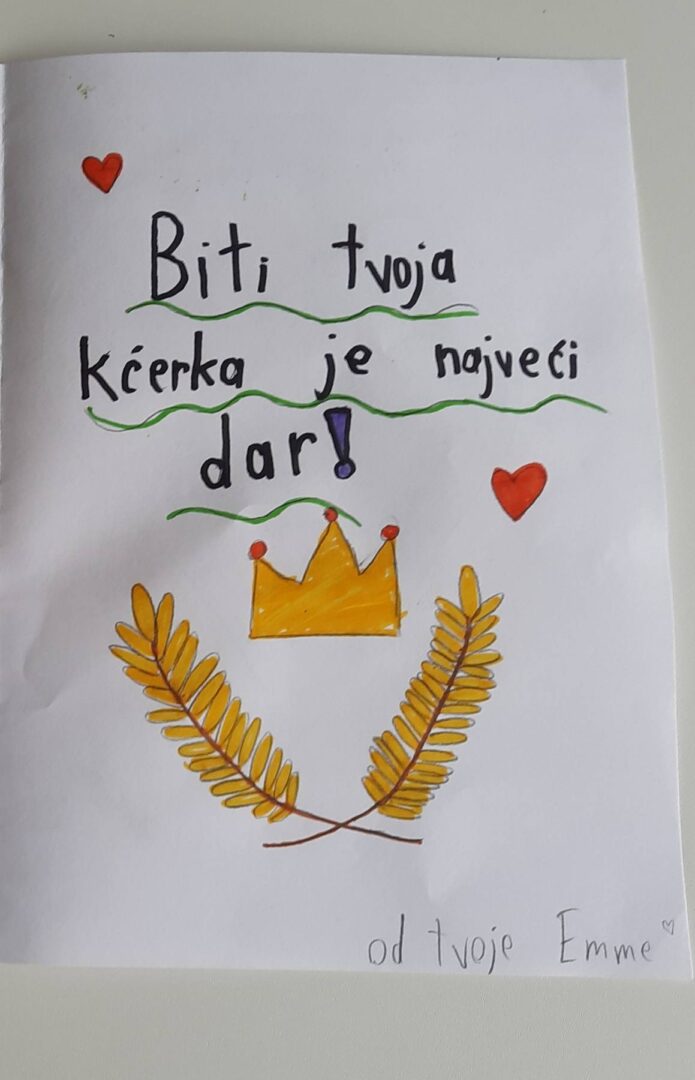 Biti tvoja
kćerka je najveći
dar!
od tvoje Emme